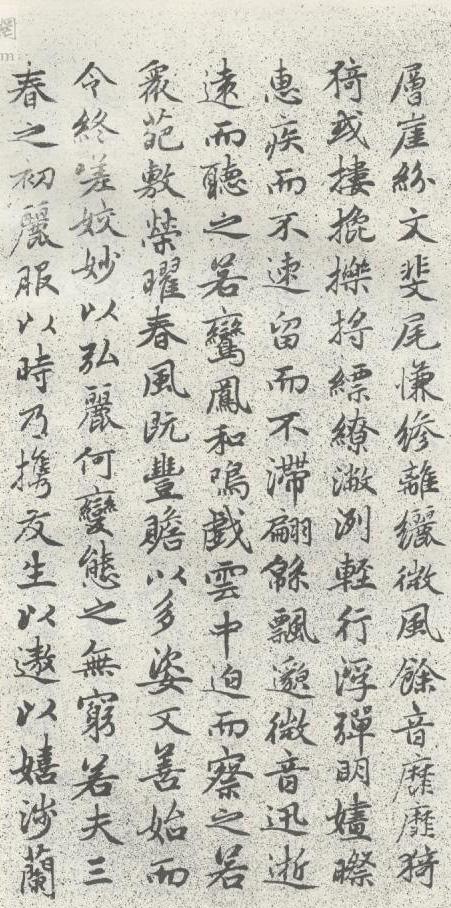 層崖紛文斐尾慊縿離纚微風餘音靡靡猗
猗或摟㧗擽捋縹繚潎洌輕行浮彈明嫿暩
惠疾而不速留而不滯翩緜飄邈微音迅逝
遠而聽之若鸞鳳和鳴戲雲中迫而察之若
衆葩敷榮曜春風既豐贍以多姿又善始而
令終嗟姣妙以弘麗何變態之無窮若夫三
春之初麗服以時乃攜友生以遨以嬉涉蘭